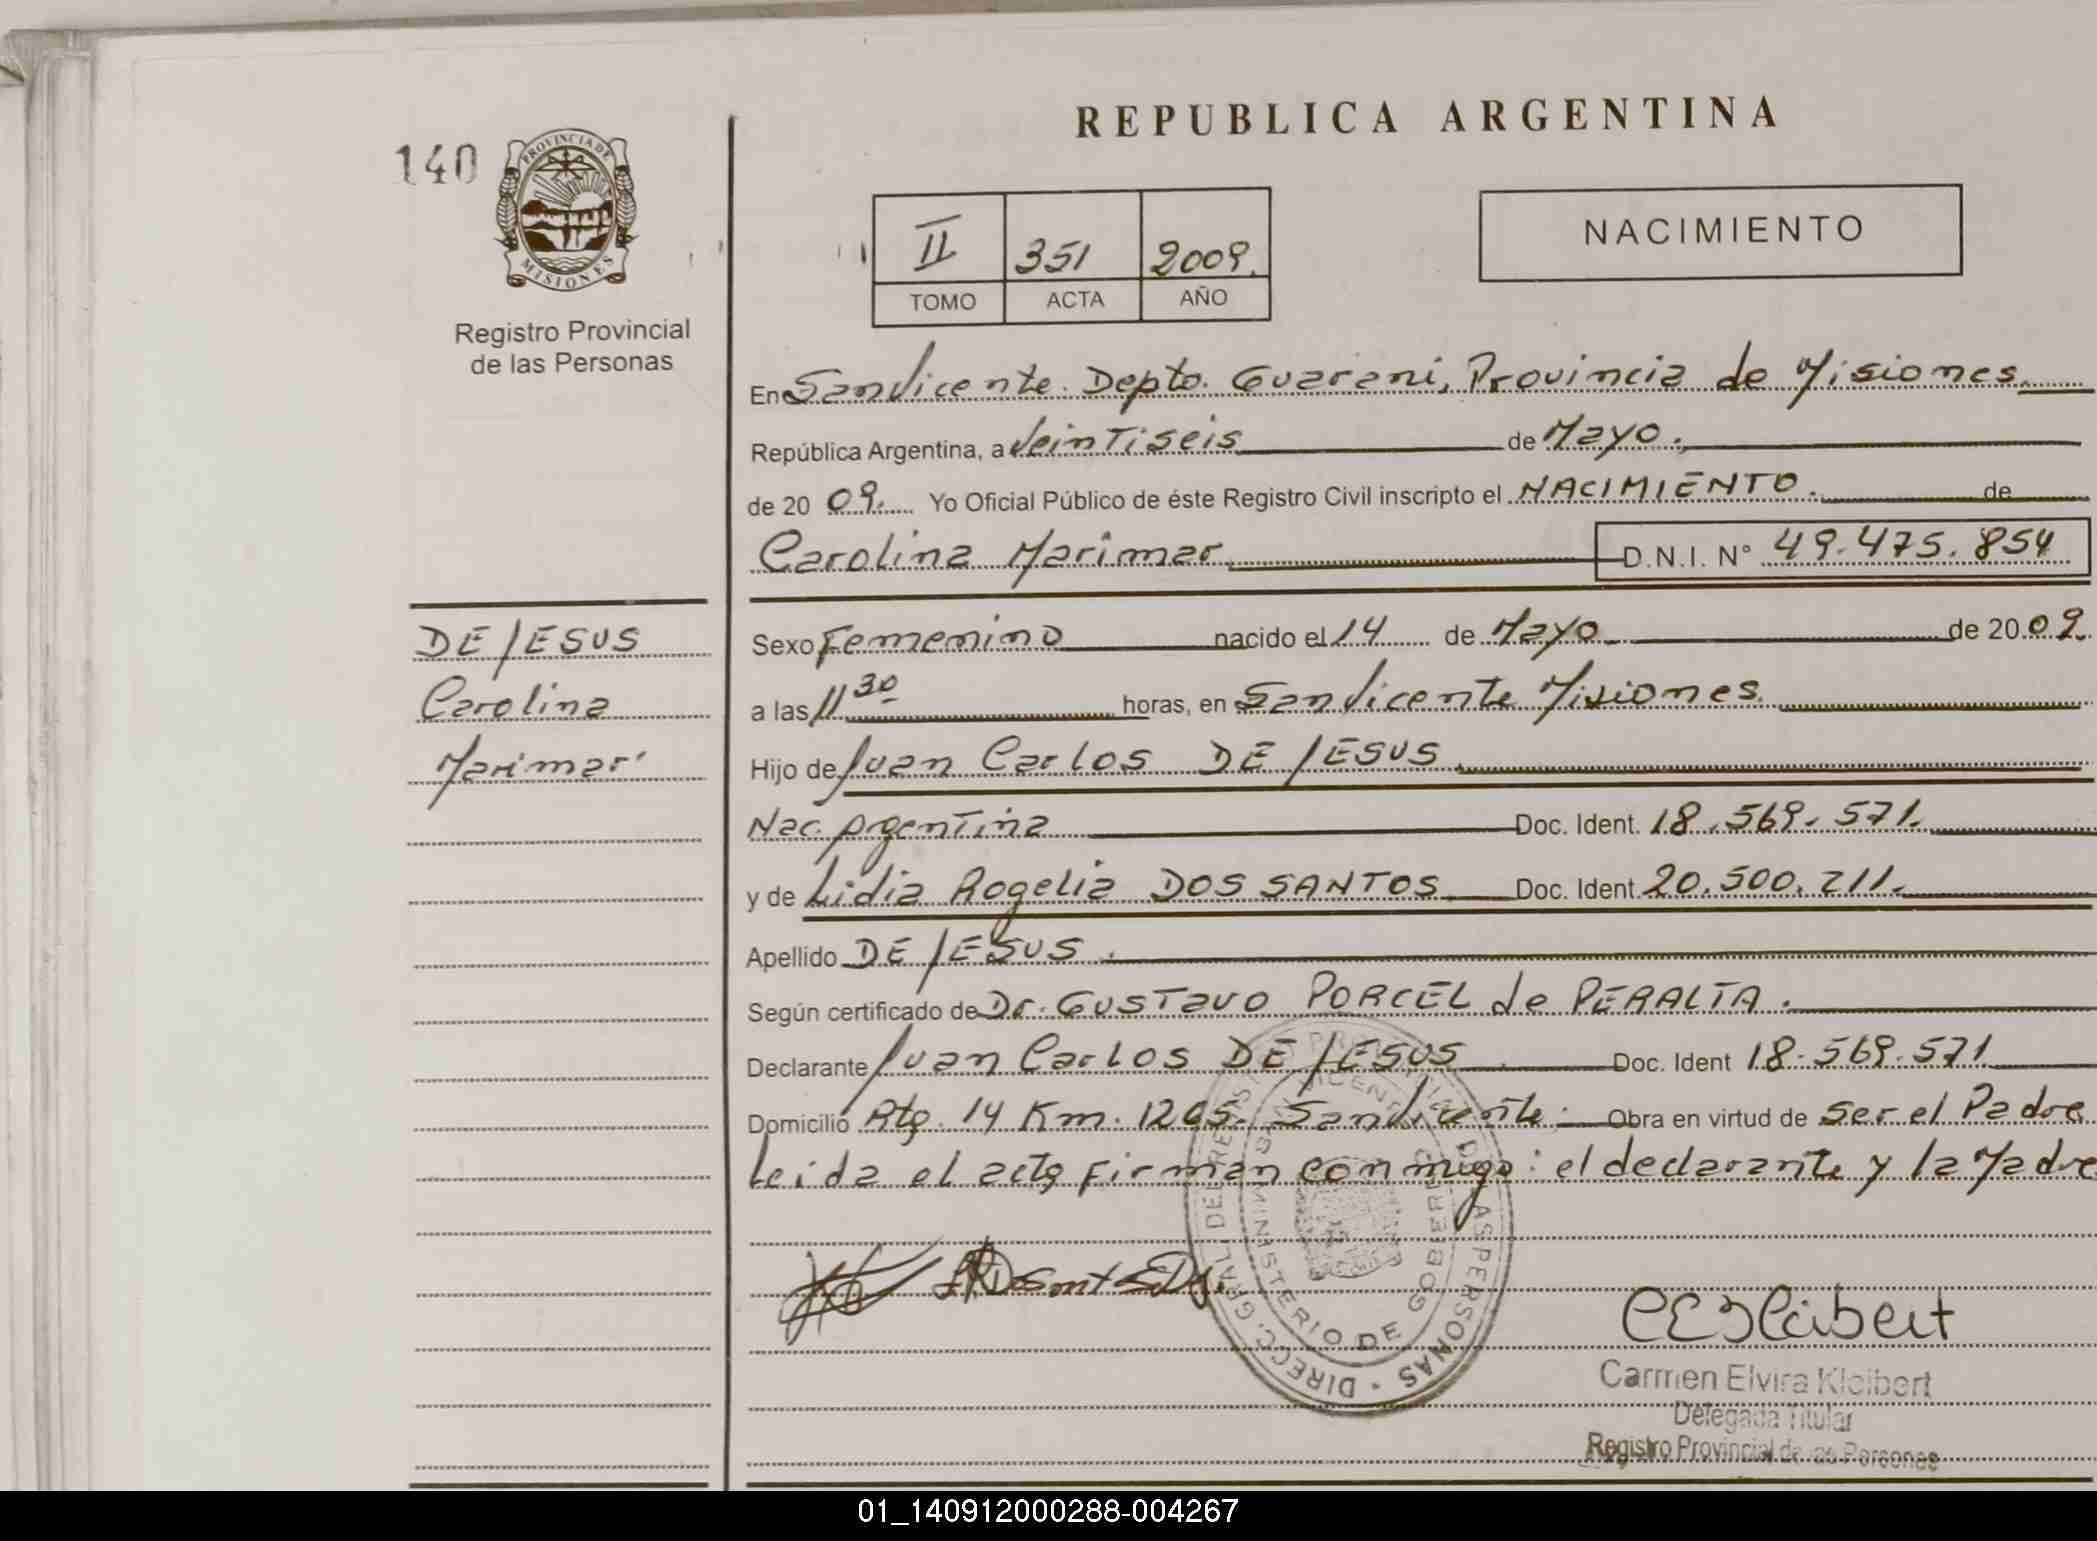 REPUBLICA ARGENTINA
140
PROVINCIA DE
MISIONES
Registro Provincial
de las Personas
II 351 2009.
TOMO ACTA AÑO
NACIMIENTO
En San Vicente. Depto. Guarani, Provincia de Misiones.
República Argentina, a Veintiseis de Mayo.
de 20 09. Yo Oficial Público de éste Registro Civil inscripto el NACIMIENTO. de
Carolina Marimar D.N.I. N° 49.475.854
DE JESUS
Carolina
Marimar
Sexo Femenino nacido el 14 de Mayo de 20 09.
a las 11 30 horas, en San Vicente Misiones.
Hijo de Juan Carlos DE JESUS.
Nac. Argentina Doc. Ident. 18.569.571.
y de Lidia Rogelia DOS SANTOS. Doc. Ident. 20.500.211.
Apellido DE JESUS.
Según certificado de Dr. Gustavo PORCEL de PERALTA.
Declarante Juan Carlos DE JESUS. Doc. Ident 18.569.571
Domicilio Rta. 14 Km. 1265. San Vicente. Obra en virtud de ser el Padre
Leida el acta firman conmigo: el declarante y la Madre
DIRECC. GRAL. DE REGISTRO PROVINCIAL DE LAS PERSONAS
MINISTERIO DE GOBIERNO
SAN VICENTE
CEKleibert
Carmen Elvira Kleibert
Delegada Titular
Registro Provincial de las Personas
01_140912000288-004267